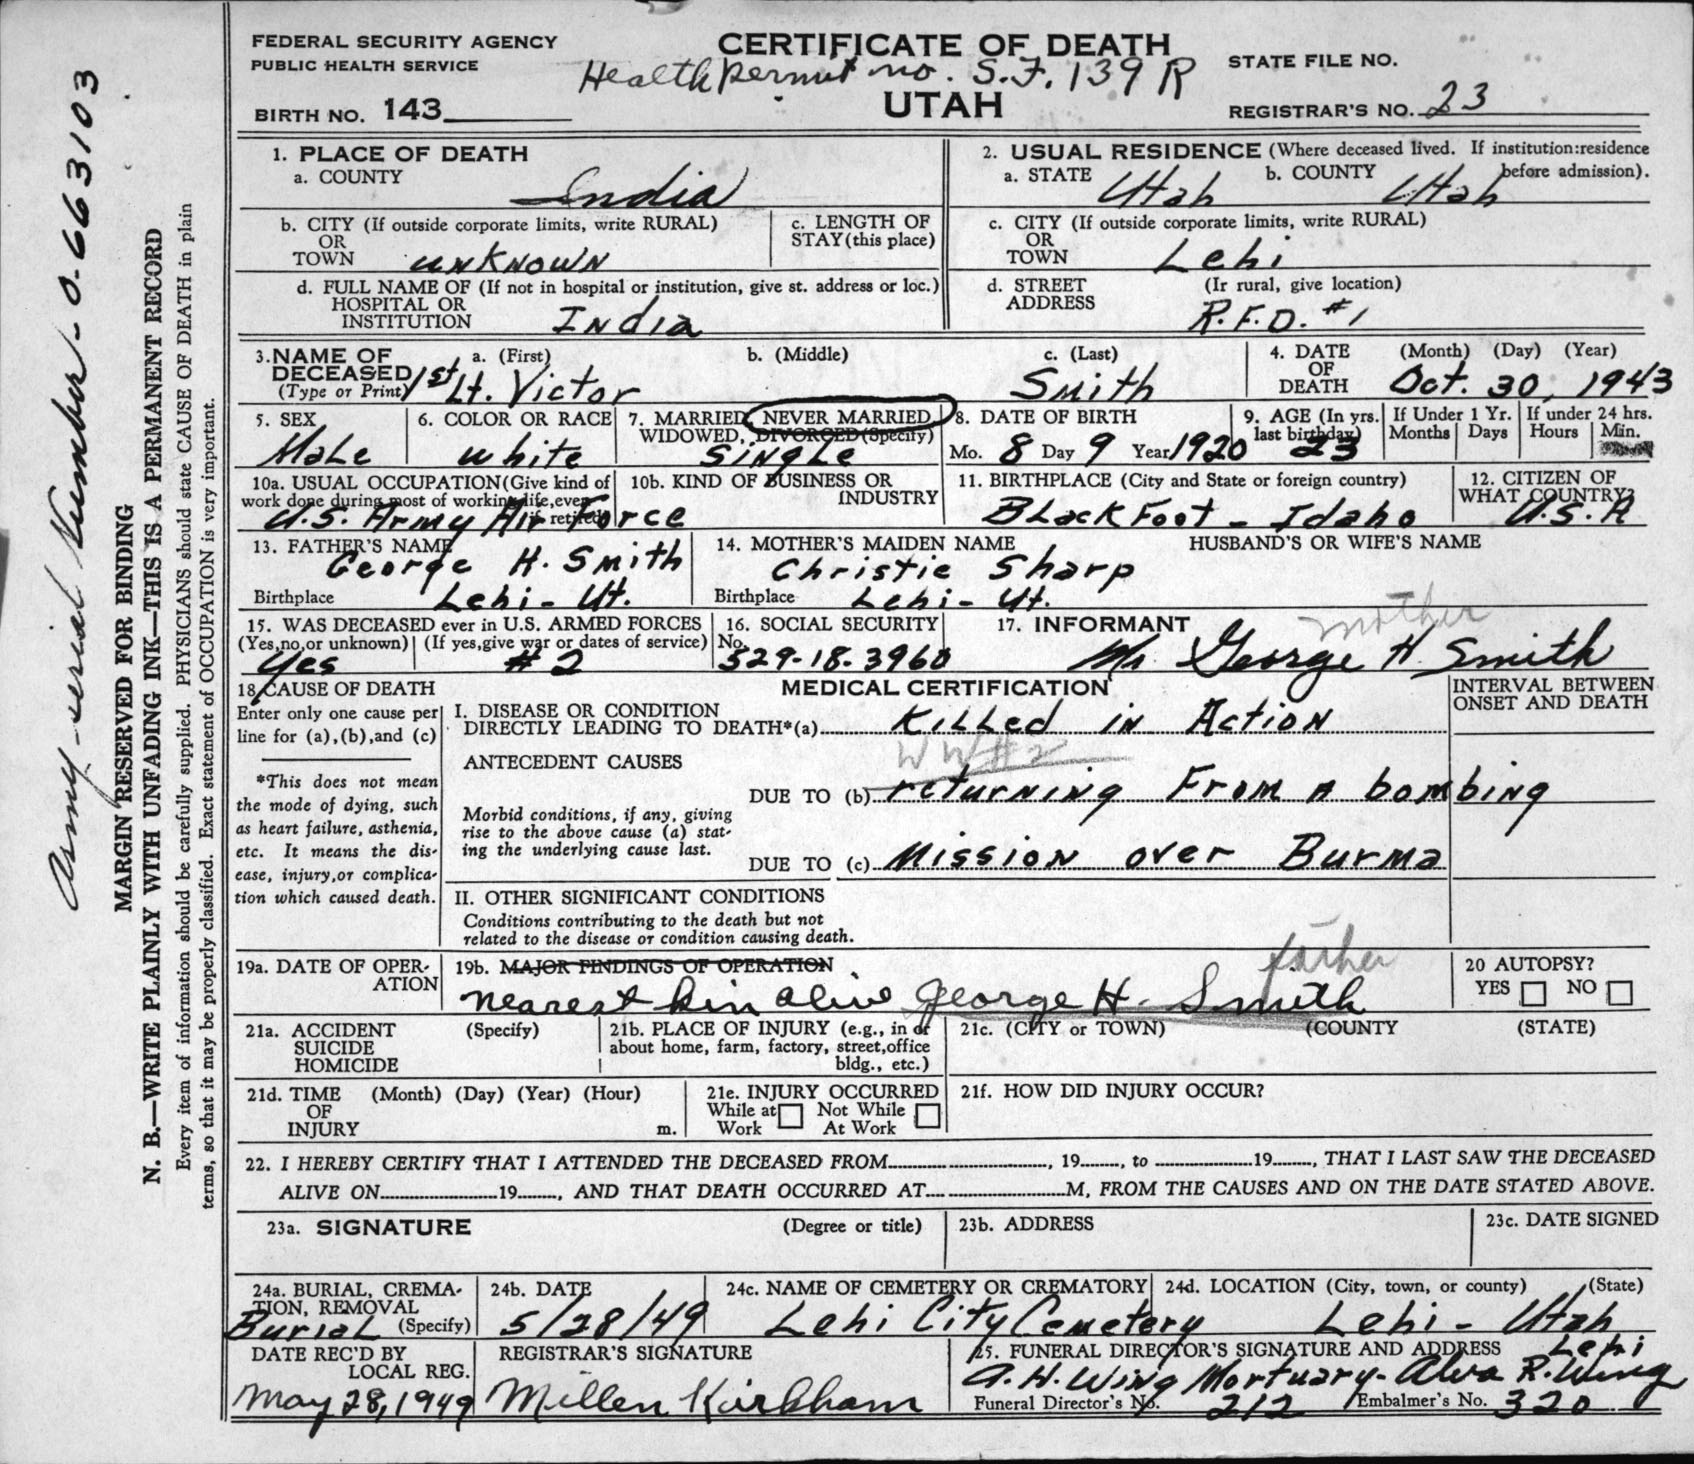 FEDERAL SECURITY AGENCY
PUBLIC HEALTH SERVICE
BIRTH NO. 143
CERTIFICATE OF DEATH
Health permit no. S.F. 139 R
UTAH
STATE FILE NO.
REGISTRAR'S NO. 23
1. PLACE OF DEATH
a. COUNTY
India
2. USUAL RESIDENCE (Where deceased lived. If institution:residence
before admission).
a. STATE Utah b. COUNTY Utah
b. CITY (If outside corporate limits, write RURAL)
OR
TOWN unknown
c. LENGTH OF
STAY(this place)
c. CITY (If outside corporate limits, write RURAL)
OR
TOWN Lehi
d. FULL NAME OF (If not in hospital or institution, give st. address or loc.)
HOSPITAL OR
INSTITUTION India
d. STREET (Ir rural, give location)
ADDRESS R.F.D. #1
3. NAME OF
DECEASED
(Type or Print)
a. (First) b. (Middle) c. (Last)
1st Lt. Victor Smith
4. DATE
OF
DEATH
(Month) (Day) (Year)
Oct. 30, 1943
5. SEX
Male
6. COLOR OR RACE
white
7. MARRIED, NEVER MARRIED,
WIDOWED, DIVORCED(Specify)
Single
8. DATE OF BIRTH
Mo. 8 Day 9 Year 1920
9. AGE (In yrs.
last birthday)
23
If Under 1 Yr.
Months Days
If under 24 hrs.
Hours Min.
10a. USUAL OCCUPATION(Give kind of
work done during most of working life,even
if retired)
U.S. Army Air Force
10b. KIND OF BUSINESS OR
INDUSTRY
11. BIRTHPLACE (City and State or foreign country)
Blackfoot - Idaho
12. CITIZEN OF
WHAT COUNTRY?
U.S.A
13. FATHER'S NAME
George H. Smith
Birthplace Lehi - Ut.
14. MOTHER'S MAIDEN NAME
Christie Sharp
Birthplace Lehi - Ut.
HUSBAND'S OR WIFE'S NAME
15. WAS DECEASED ever in U.S. ARMED FORCES
(Yes,no,or unknown) (If yes,give war or dates of service)
Yes #2
16. SOCIAL SECURITY
No.
529-18-3960
17. INFORMANT
mother
Mr. George H. Smith
18. CAUSE OF DEATH
Enter only one cause per
line for (a),(b),and (c)
*This does not mean
the mode of dying, such
as heart failure, asthenia,
etc. It means the dis-
ease, injury,or complica-
tion which caused death.
MEDICAL CERTIFICATION
INTERVAL BETWEEN
ONSET AND DEATH
I. DISEASE OR CONDITION
DIRECTLY LEADING TO DEATH*(a) Killed in Action
WW#2
ANTECEDENT CAUSES
DUE TO (b) returning From A bombing
Morbid conditions, if any, giving
rise to the above cause (a) stat-
ing the underlying cause last.
DUE TO (c) Mission over Burma
II. OTHER SIGNIFICANT CONDITIONS
Conditions contributing to the death but not
related to the disease or condition causing death.
19a. DATE OF OPER-
ATION
19b. MAJOR FINDINGS OF OPERATION
father
nearest kin alive George H. Smith
20 AUTOPSY?
YES NO
21a. ACCIDENT (Specify)
SUICIDE
HOMICIDE
21b. PLACE OF INJURY (e.g., in or
about home, farm, factory, street,office
bldg., etc.)
21c. (CITY or TOWN) (COUNTY (STATE)
21d. TIME (Month) (Day) (Year) (Hour)
OF
INJURY m.
21e. INJURY OCCURRED
While at Not While
Work At Work
21f. HOW DID INJURY OCCUR?
22. I HEREBY CERTIFY THAT I ATTENDED THE DECEASED FROM, 19, to 19, THAT I LAST SAW THE DECEASED
ALIVE ON 19, AND THAT DEATH OCCURRED AT M, FROM THE CAUSES AND ON THE DATE STATED ABOVE.
23a. SIGNATURE (Degree or title)
23b. ADDRESS
23c. DATE SIGNED
24a. BURIAL, CREMA-
TION, REMOVAL
Burial (Specify)
24b. DATE
5/28/49
24c. NAME OF CEMETERY OR CREMATORY
Lehi City Cemetery
24d. LOCATION (City, town, or county) (State)
Lehi - Utah
DATE REC'D BY
LOCAL REG.
May 28, 1949
REGISTRAR'S SIGNATURE
Millen Kirkham
25. FUNERAL DIRECTOR'S SIGNATURE AND ADDRESS Lehi
A.H. Wing Mortuary - Alva R. Wing
Funeral Director's No. 212 Embalmer's No. 320
Army-serial Number - 0.663103
MARGIN RESERVED FOR BINDING
N. B.—WRITE PLAINLY WITH UNFADING INK—THIS IS A PERMANENT RECORD
Every item of information should be carefully supplied. PHYSICIANS should state CAUSE OF DEATH in plain
terms, so that it may be properly classified. Exact statement of OCCUPATION is very important.